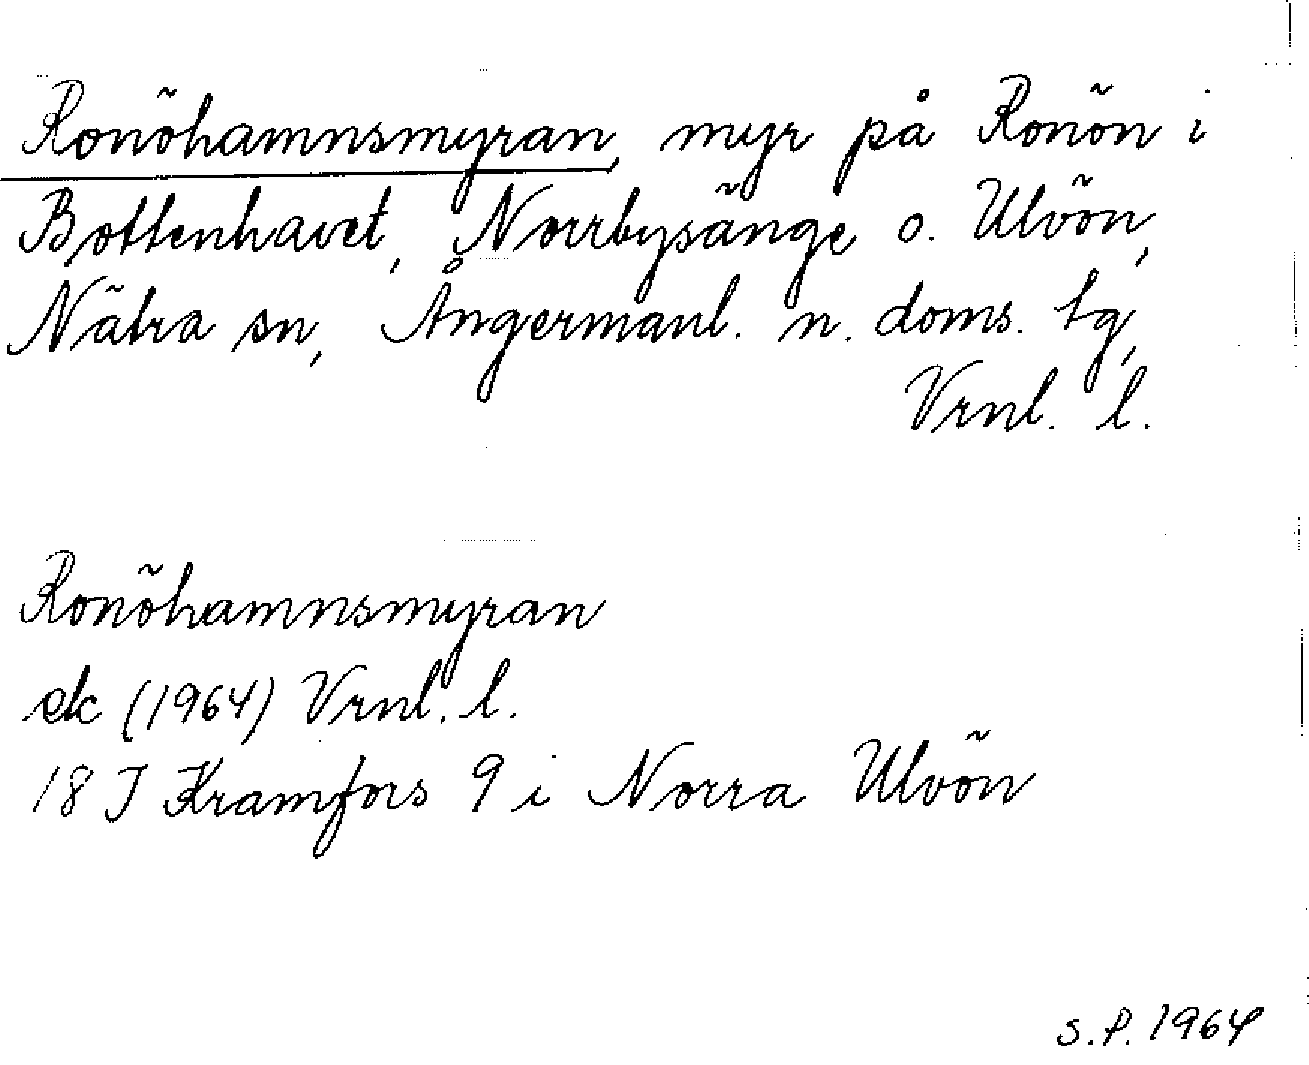 Ronöhamnsmyran, myr på Ronön i
Bottenhavet, Norrbysänge o. Ulvön,
Nätra sn, Ångermanl. n. doms. tg,
Vrnl. l.
Ronöhamnsmyran
ek (1964) Vrnl. l.
18 J Kramfors 9 i Norra Ulvön
S.P. 1964